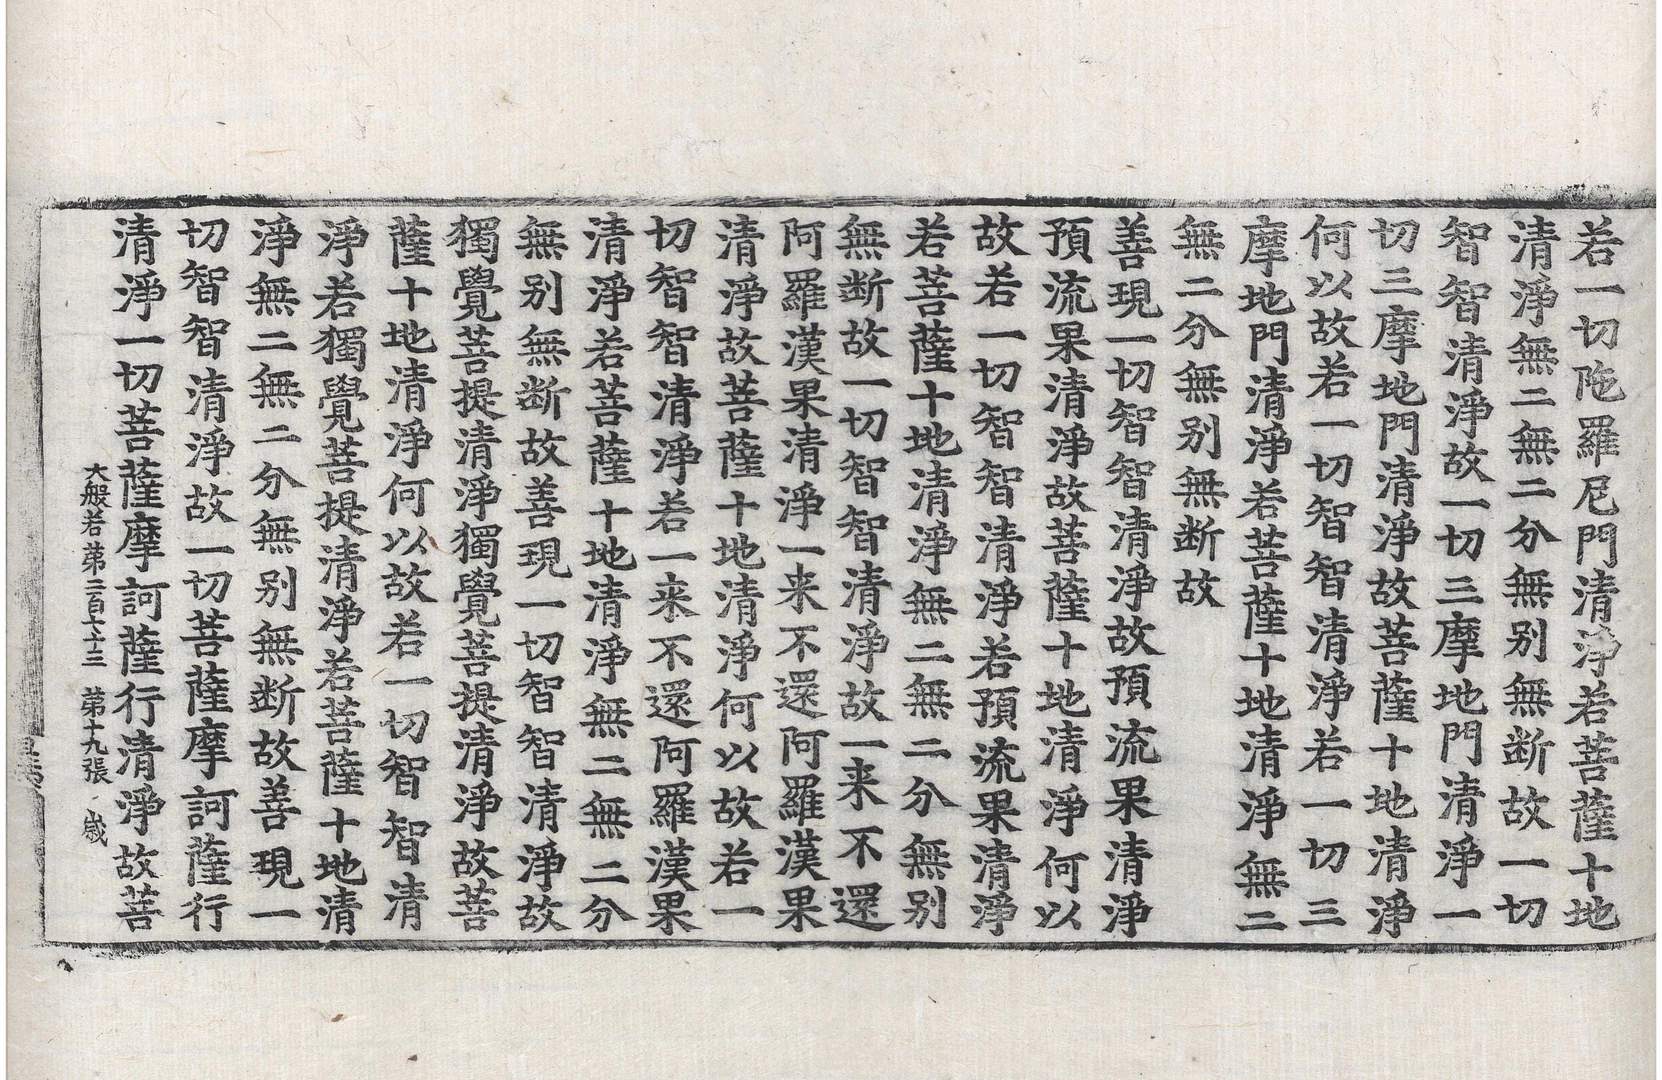 若一切陁羅尼門清淨若菩薩十地
清淨無二無二分無别無断故一切
智智清淨故一切三摩地門清淨一
切三摩地門清淨故菩薩十地清淨
何以故若一切智智清淨若一切三
摩地門清淨若菩薩十地清淨無二
無二分無别無断故
善現一切智智清淨故預流果清淨
預流果清淨故菩薩十地清淨何以
故若一切智智清淨若預流果清淨
若菩薩十地清淨無二無二分無别
無断故一切智智清淨故一来不還
阿羅漢果清淨一来不還阿羅漢果
清淨故菩薩十地清淨何以故若一
切智智清淨若一来不還阿羅漢果
清淨若菩薩十地清淨無二無二分
無别無断故善現一切智智清淨故
獨覺菩提清淨獨覺菩提清淨故菩
薩十地清淨何以故若一切智智清
淨若獨覺菩提清淨若菩薩十地清
淨無二無二分無别無断故善現一
切智智清淨故一切菩薩摩訶薩行
清淨一切菩薩摩訶薩行清淨故菩
大般若第二百七十三 第十九張